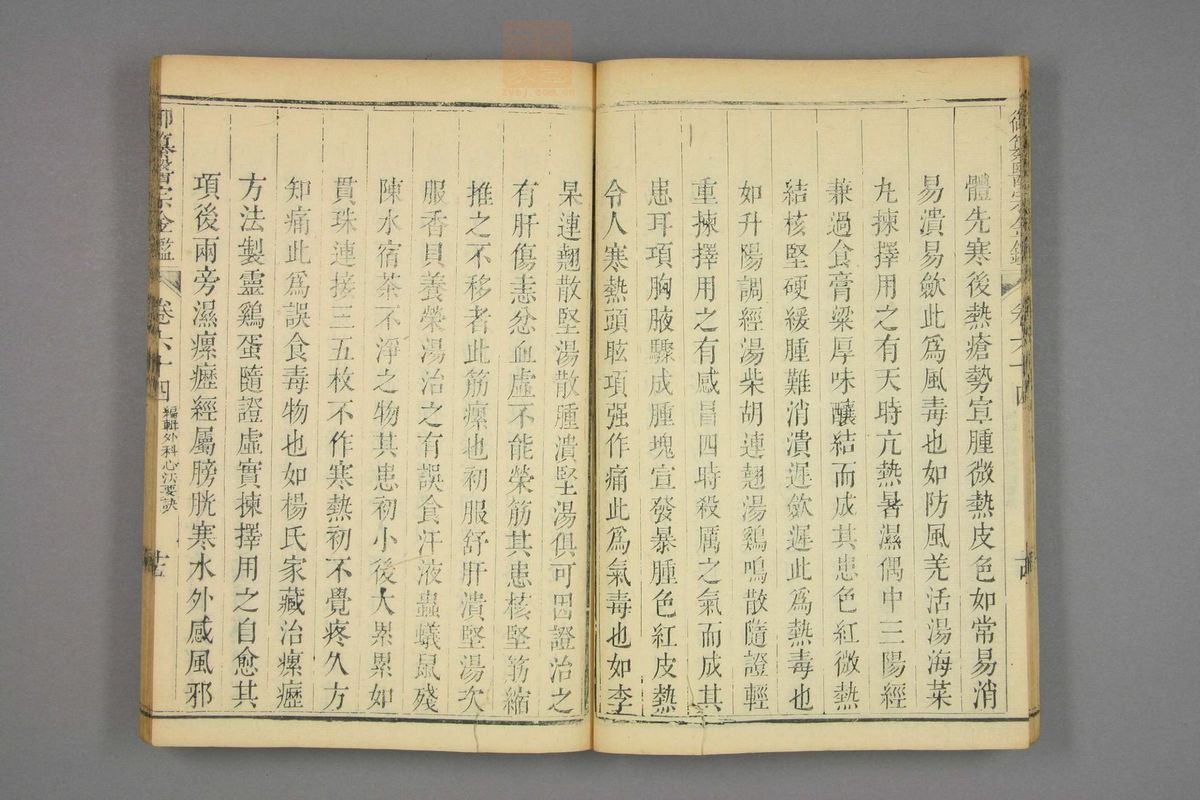 體先寒後熱瘡勢宣腫微熱皮色如常易消
易潰易斂此爲風毒也如防風羌活湯海菜
丸揀擇用之有天時亢熱暑濕偶中三陽經
兼過食膏粱厚味釀結而成其患色紅微熱
結核堅硬緩腫難消潰遲斂遲此爲熱毒也
如升陽調經湯柴胡連翹湯鷄鳴散隨證輕
重揀擇用之有感冒四時殺厲之氣而成其
患耳項胸腋驟成腫塊宣發暴腫色紅皮熱
令人寒熱頭眩項强作痛此爲氣毒也如李
杲連翹散堅湯散腫潰堅湯俱可因證治之
有肝傷恚忿血虛不能榮筋其患核堅筋縮
推之不移者此筋瘰也初服舒肝潰堅湯次
服香貝養榮湯治之有誤食汗液蟲蟻鼠殘
陳水宿茶不淨之物其患初小後大累累如
貫珠連接三五枚不作寒熱初不覺疼久方
知痛此爲誤食毒物也如楊氏家藏治瘰癧
方法製靈鷄蛋隨證虛實揀擇用之自愈其
項後兩旁濕瘰癧經屬膀胱寒水外感風邪
御纂醫宗金鑑
卷六十四
編輯外科心法要訣